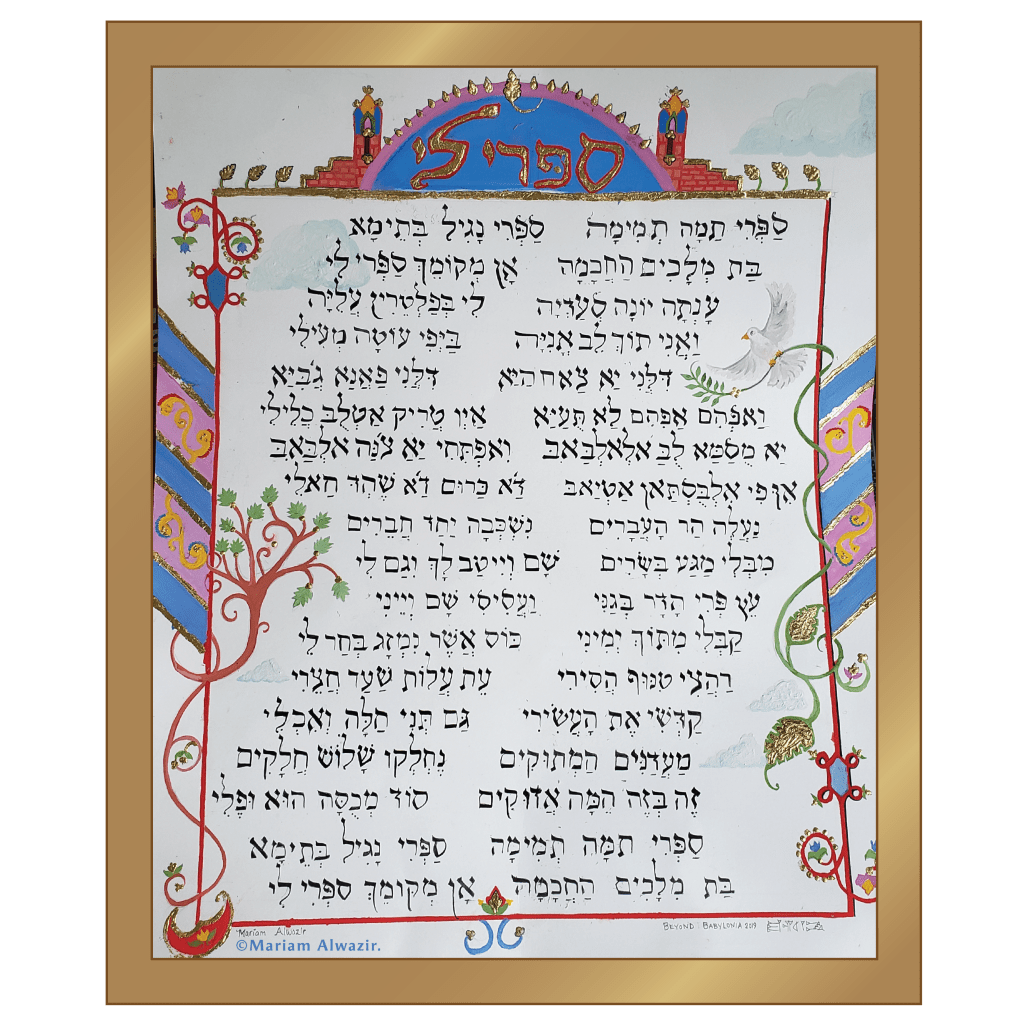 ספרי לי
סַפְּרִי תַמָּה תְמִימָה סַפְּרִי נָגִיל בְּתֵימָא
בַּת מְלָכִים הַחֲכָמָה אָן מְקוֹמֵךְ סַפְּרִי לִי
עָנְתָה יוֹנָה סְעַדְיָּה לִי בְּפַלְטְרִין עֲלִיָּה
וַאֲנִי תוֹךְ לֵב אֳנִיָּה בַּיְּפִי עוֹטָה מְעִילִי
דִּלַּנִי יַא צַאח הַיַּא דִּלַּנִי פַאַנַא גַׄבִּיַּא
וַאִפְׄהִם אַפְהִם לַא תַּעַיַּא אַיְּן טַרִיק אַטְלֻבּ כֻּלִילִי
יַא מֻסַמַּא לֻבַּ אלְאַלְבַּאבּ וִאפְתַּחִי יַא צֹנַּה אלְבַּאבּ
אִן פִי אלְבֻּסְתַּאן אַטְיַאבּ דַׄא כַּרוּם דַׄא שֻׁהְד חַאלִי
נַעֲלֶה הַר הָעֲבָרִים נִשְׁכְּבָה יַחַד חֲבֵרִים
מִבְּלִי מַגַּע בְּשָׂרִים שָׁם וְיִיטַב לָךְ וְגַם לִי
עֵץ פְּרִי הָדָר בְּגַנִּי וַעֲסִיסִי שָׁם וְיֵינִי
קַבְּלִי מִתּוֹךְ יְמִינִי כּוֹס אֲשֶׁר נִמְזָג בְּחַר לֵי
רַחֲצִי טִנּוּף הֲסִירִי עֵת עֲלוֹת שַׁעַר חֲצֵרִי
קַדְּשִׁי אֶת הָעֲשִׂירִי גַּם תְּנִי חַלָּה וְאִכְלִי
מַעֲדַנִּים הַמְּתוּקִים נֶחְלְקוּ שָׁלוֹשׁ חֲלָקִים
זֶה בְּזֶה הֵמָּה אֲדוּקִים סוֹד מְכֻסֶּה הוּא וּפֶלִי
סַפְּרִי תַּמָּה תְמִימָה סַפְּרִי נָגִיל בְּתֵימָא
בַּת מְלָכִים הַחֲכָמָה אָן מְקוֹמֵךְ סַפְּרִי לִי
Mariam Alwazir
BEYOND BABYLONIA 2019
©Mariam Alwazir.